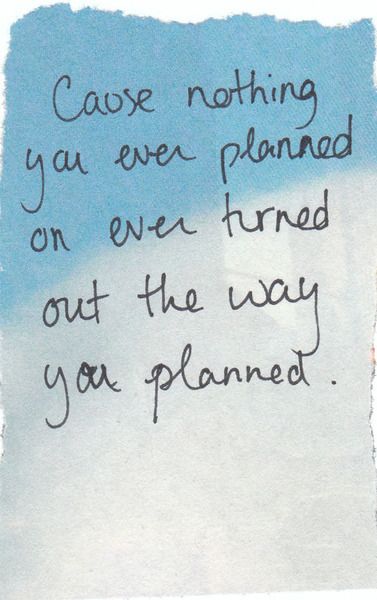 Cause nothing
you ever planned
on ever turned
out the way
you planned.